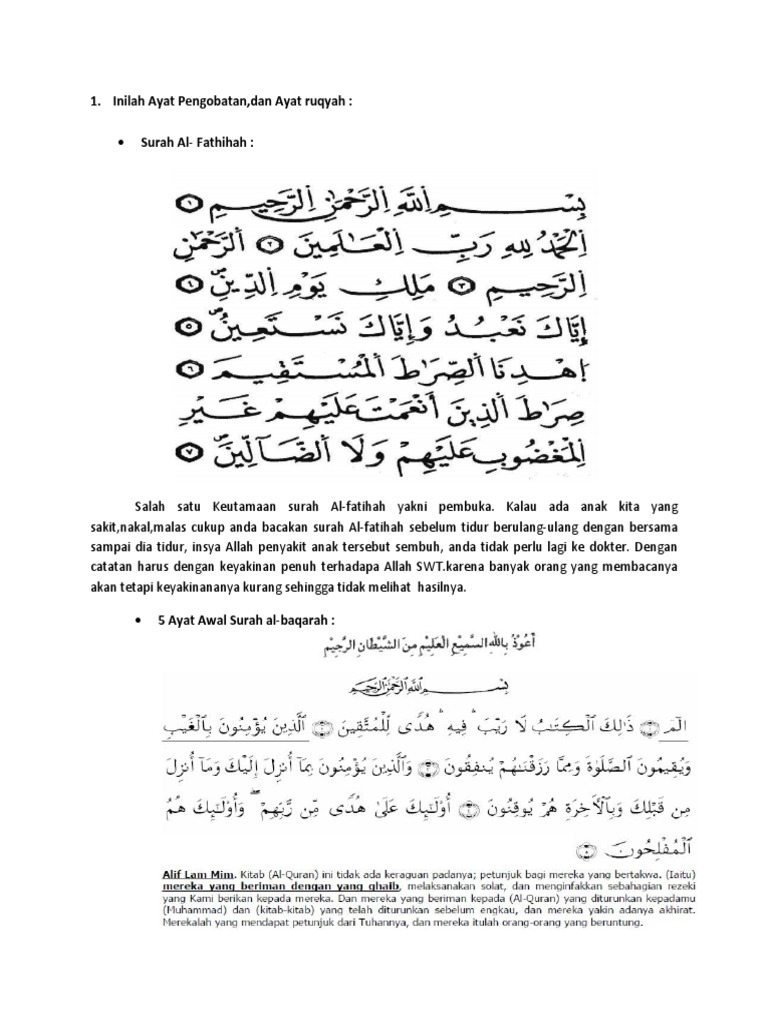 1. Inilah Ayat Pengobatan,dan Ayat ruqyah :
• Surah Al- Fathihah :
بِسْمِ اللَّهِ الرَّحْمَٰنِ الرَّحِيمِ ۝١
الْحَمْدُ لِلَّهِ رَبِّ الْعَالَمِينَ ۝٢ الرَّحْمَٰنِ
الرَّحِيمِ ۝٣ مَلِكِ يَوْمِ الدِّينِ ۝٤
إِيَّاكَ نَعْبُدُ وَإِيَّاكَ نَسْتَعِينُ ۝٥
اهْدِنَا الصِّرَاطَ الْمُسْتَقِيمَ ۝٦
صِرَاطَ الَّذِينَ أَنْعَمْتَ عَلَيْهِمْ غَيْرِ
الْمَغْضُوبِ عَلَيْهِمْ وَلَا الضَّآلِّينَ ۝٧
Salah satu Keutamaan surah Al-fatihah yakni pembuka. Kalau ada anak kita yang
sakit,nakal,malas cukup anda bacakan surah Al-fatihah sebelum tidur berulang-ulang dengan bersama
sampai dia tidur, insya Allah penyakit anak tersebut sembuh, anda tidak perlu lagi ke dokter. Dengan
catatan harus dengan keyakinan penuh terhadapa Allah SWT.karena banyak orang yang membacanya
akan tetapi keyakinananya kurang sehingga tidak melihat hasilnya.
• 5 Ayat Awal Surah al-baqarah :
أَعُوْذُ بِاللهِ السَّمِيْعِ الْعَلِيْمِ مِنَ الشَّيْطَانِ الرَّجِيْمِ
بِسْمِ اللَّهِ الرَّحْمَٰنِ الرَّحِيمِ
الٓمٓ ۝١ ذَٰلِكَ الْكِتَابُ لَا رَيْبَ ۛ فِيهِ ۛ هُدًى لِّلْمُتَّقِينَ ۝٢ الَّذِينَ يُؤْمِنُونَ بِالْغَيْبِ
وَيُقِيمُونَ الصَّلَوٰةَ وَمِمَّا رَزَقْنَاهُمْ يُنفِقُونَ ۝٣ وَالَّذِينَ يُؤْمِنُونَ بِمَا أُنزِلَ إِلَيْكَ وَمَا أُنزِلَ
مِن قَبْلِكَ وَبِالْآخِرَةِ هُمْ يُوقِنُونَ ۝٤ أُولَٰئِكَ عَلَىٰ هُدًى مِّن رَّبِّهِمْ ۖ وَأُولَٰئِكَ هُمُ
الْمُفْلِحُونَ ۝٥
Alif Lam Mim. Kitab (Al-Quran) ini tidak ada keraguan padanya; petunjuk bagi mereka yang bertakwa. (Iaitu)
mereka yang beriman dengan yang ghaib, melaksanakan solat, dan menginfakkan sebahagian rezeki
yang Kami berikan kepada mereka. Dan mereka yang beriman kepada (Al-Quran) yang diturunkan kepadamu
(Muhammad) dan (kitab-kitab) yang telah diturunkan sebelum engkau, dan mereka yakin adanya akhirat.
Merekalah yang mendapat petunjuk dari Tuhannya, dan mereka itulah orang-orang yang beruntung.